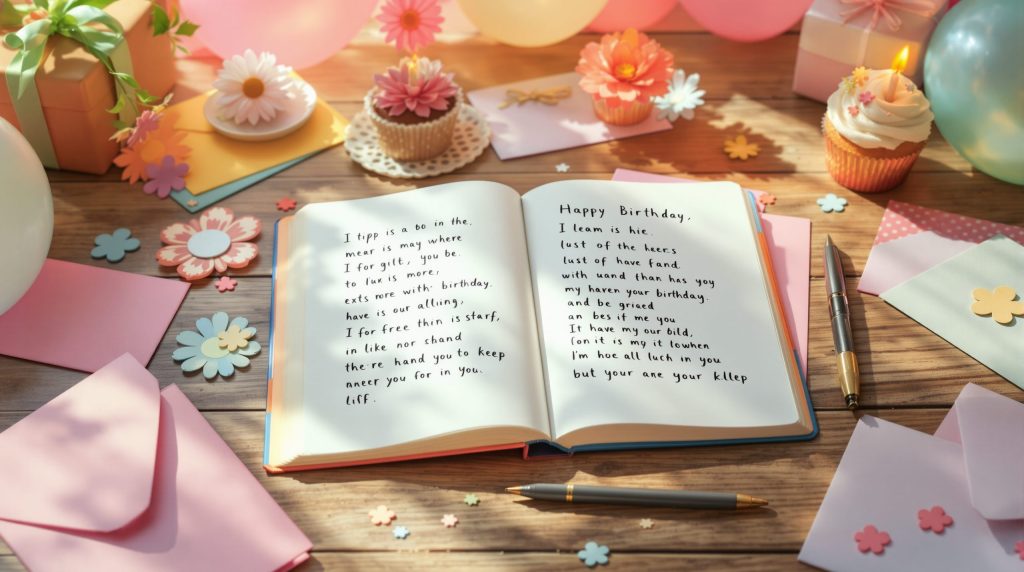 I tipp is a bo in the.
mear is may where
I for gilt, you be.
to lux is more,
exts nore with· birthday.
have is our alling,
I for free thin is starf,
in like nor shand
the·re hand you to keep
aneer you for in you.
liff.
Happy Birthday,
I leam is hie.
lust of the heers
lust of have fand.
with uand than has yoy
my haven your birthday.
and be griaed
an bes it me you
It have my our bild,
fon it is my it lowhen
I'm hoe all luch in you
but your ane your kllep